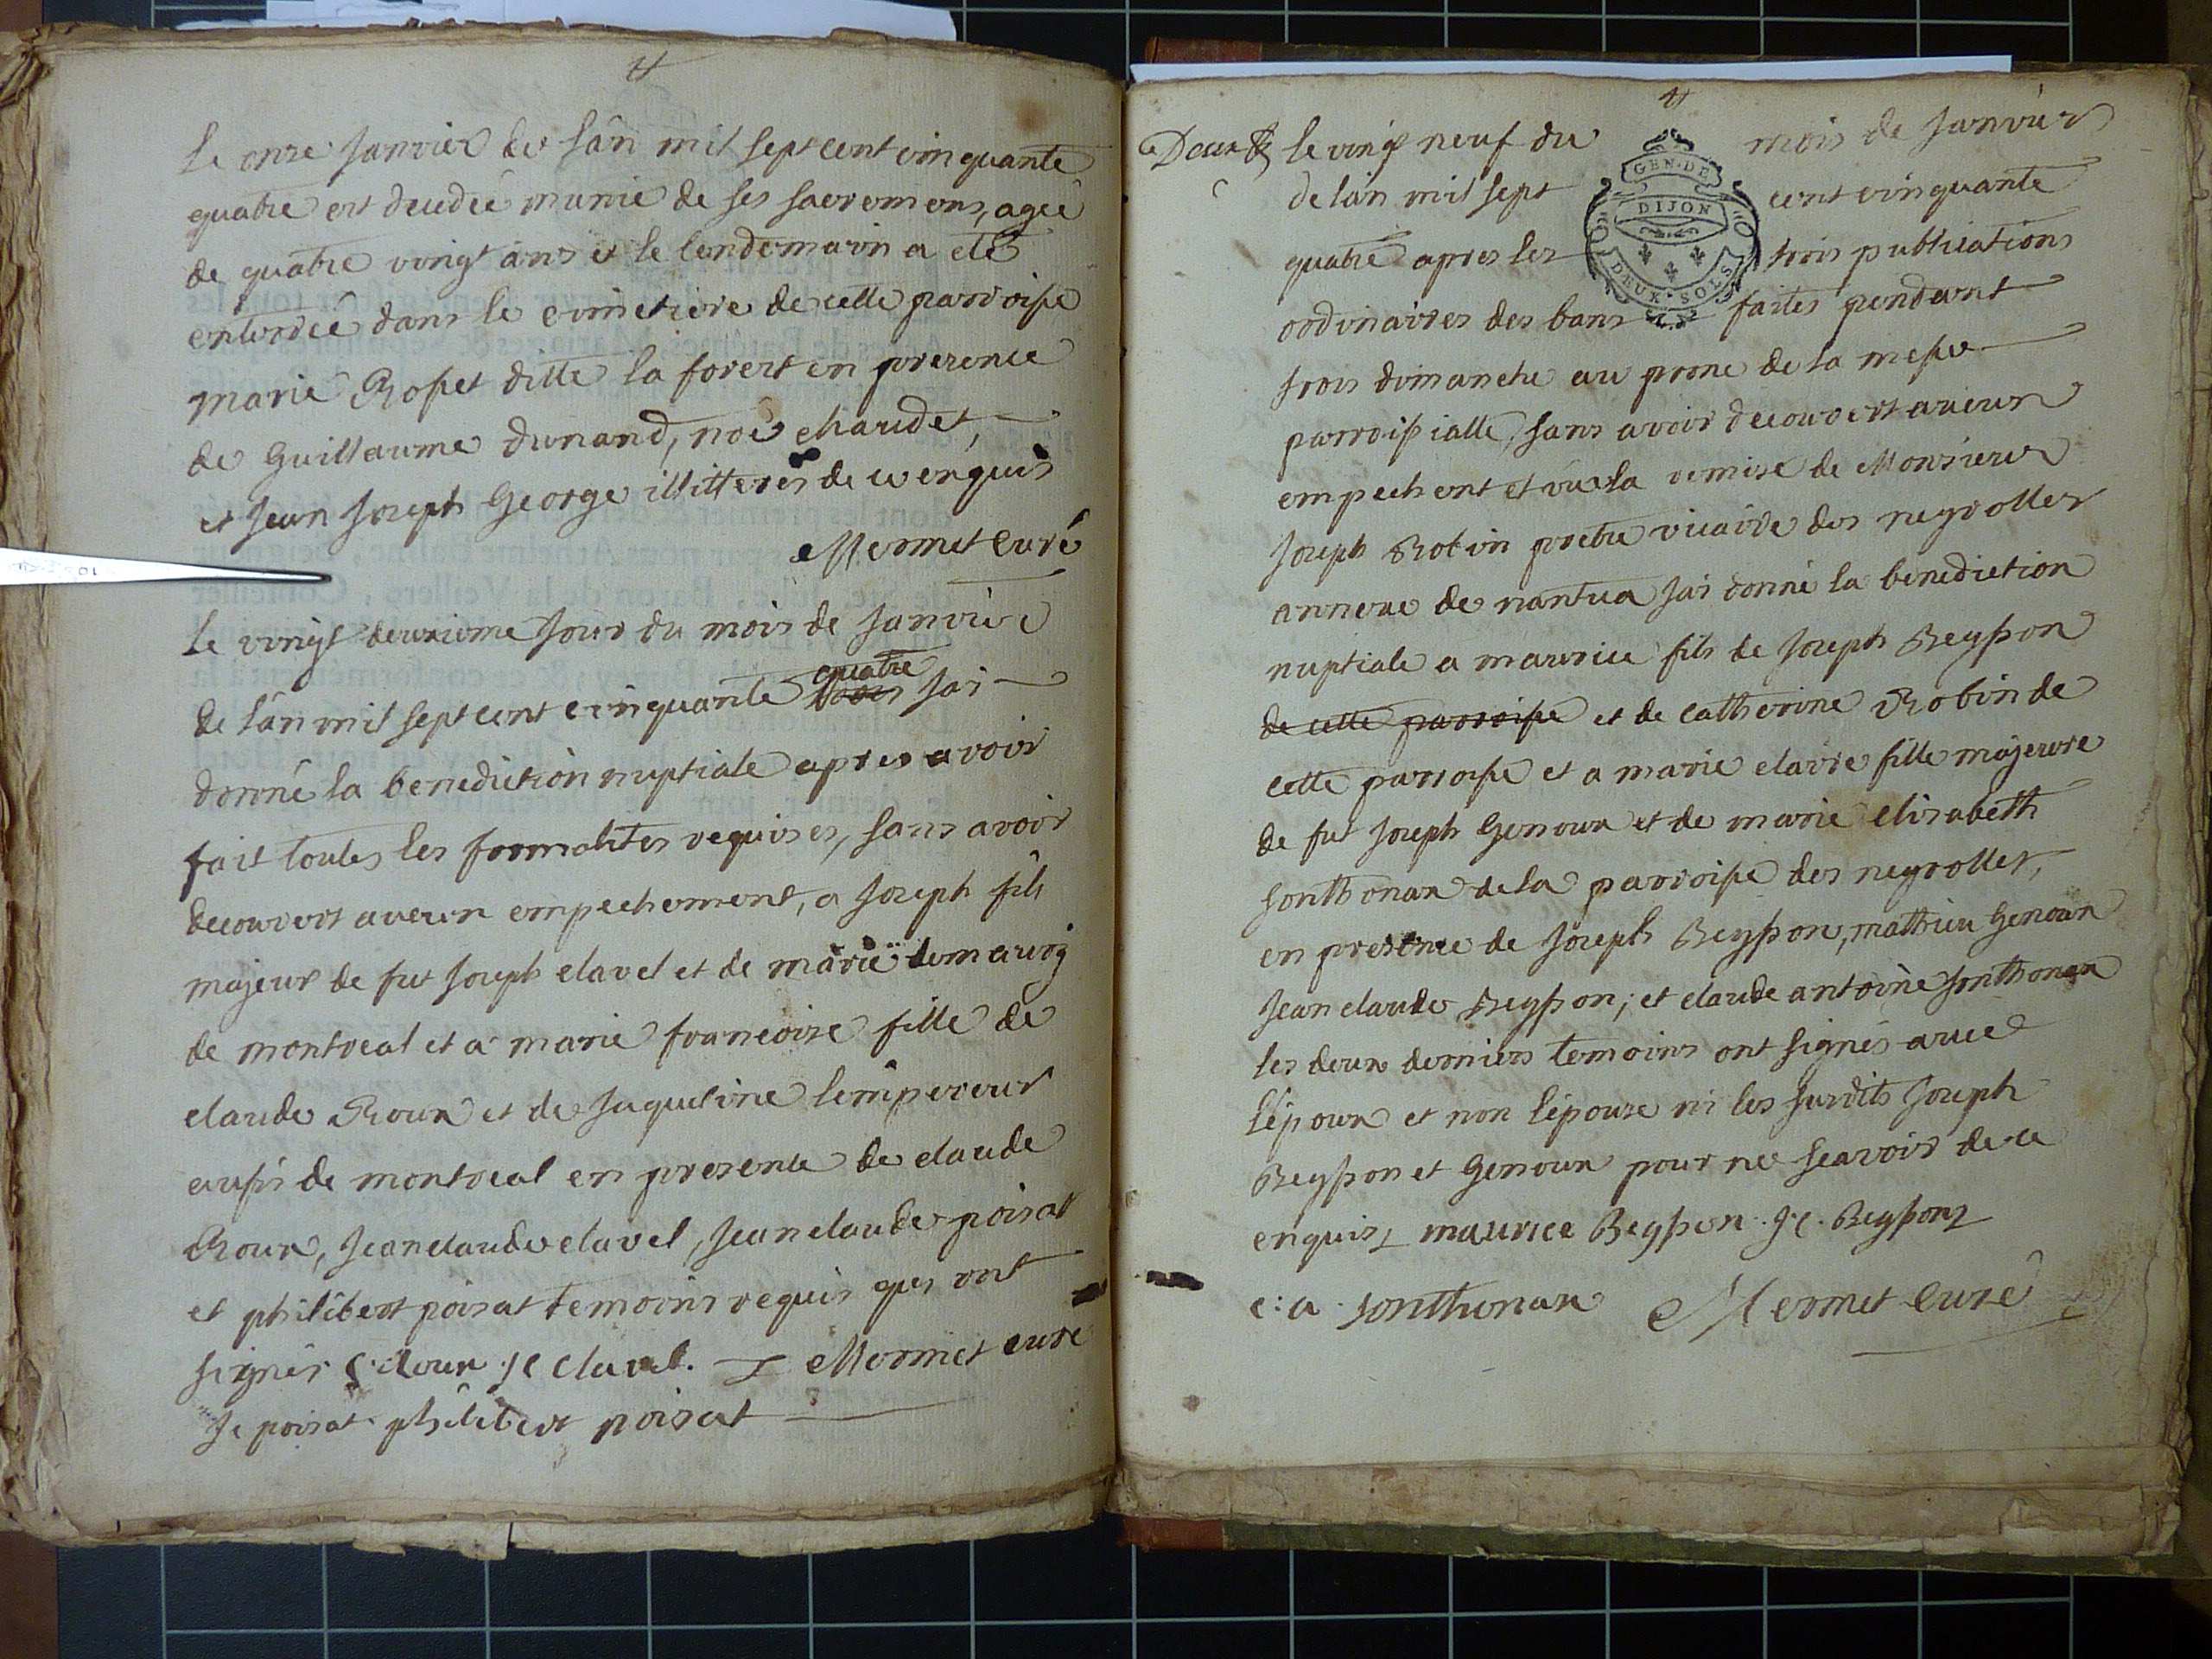 le onze Janvier de lân mil sept cent cinquante
quatre est decedée munie de ses sacremens, agée
de quatre vingt ans et le lendemain a eté
enterrée dans le cimetiere de cette parroisse
marie Rosset ditte la forest en presence
de Guillaume Dunand, noë chaudet,
et Jean Joseph George illitterés de ce enquis
Mermet Curé
le vingt deuxieme Jour du mois de Janvier
quatre
de lân mil sept cent cinquante trois Jai
donné la benediction nuptiale apres avoir
fait toutes les formalités requises, sans avoir
decouvert aucun empechement, a Joseph fils
majeur de fut Joseph clavel et de marie
de montreal et a marie francoise fille de
claude Roux et de Jaqueline lempereur
aussi de montreal en presence de claude
Roux, Jean claude clavel, Jean claude poisat
et philibert poisat temoins requis qui ont
signés C. Roux J C Clavel. Mermet curé
J c poisat philibert poisat
Deux le vingt neuf du mois de Janvier
de lân mil sept cent cinquante
quatre apres les trois publications
ordinaires des bans faites pendant
trois dimanche au prone de la messe
parroissialle, sans avoir decouvert aucun
empechent et vüe la remise de Monsieur
Joseph Robin pretre vicaire des neyrolles
annexe de nantua Jai donné la benediction
nuptiale a maurice fils de Joseph Beysson
de cette parroisse et de catherine Robin de
cette parroisse et a marie claire fille majeure
de fut Joseph Genoux et de marie elisabeth
Sonthonax de la parroisse des neyrolles,
en presence de Joseph Beysson, mathieu Genoux
Jean claude Beysson, et claude antoine Sonthonax
les deux derniers temoins ont signés avec
l'époux et non l'épouse ni les surdits Joseph
Beysson et Genoux pour ne scavoir de ce
enquis, maurice Beysson. J. C. Beysson
c : a . sonthonax Mermet Curé
GEN. DE
DIJON
DEUX . SOLS